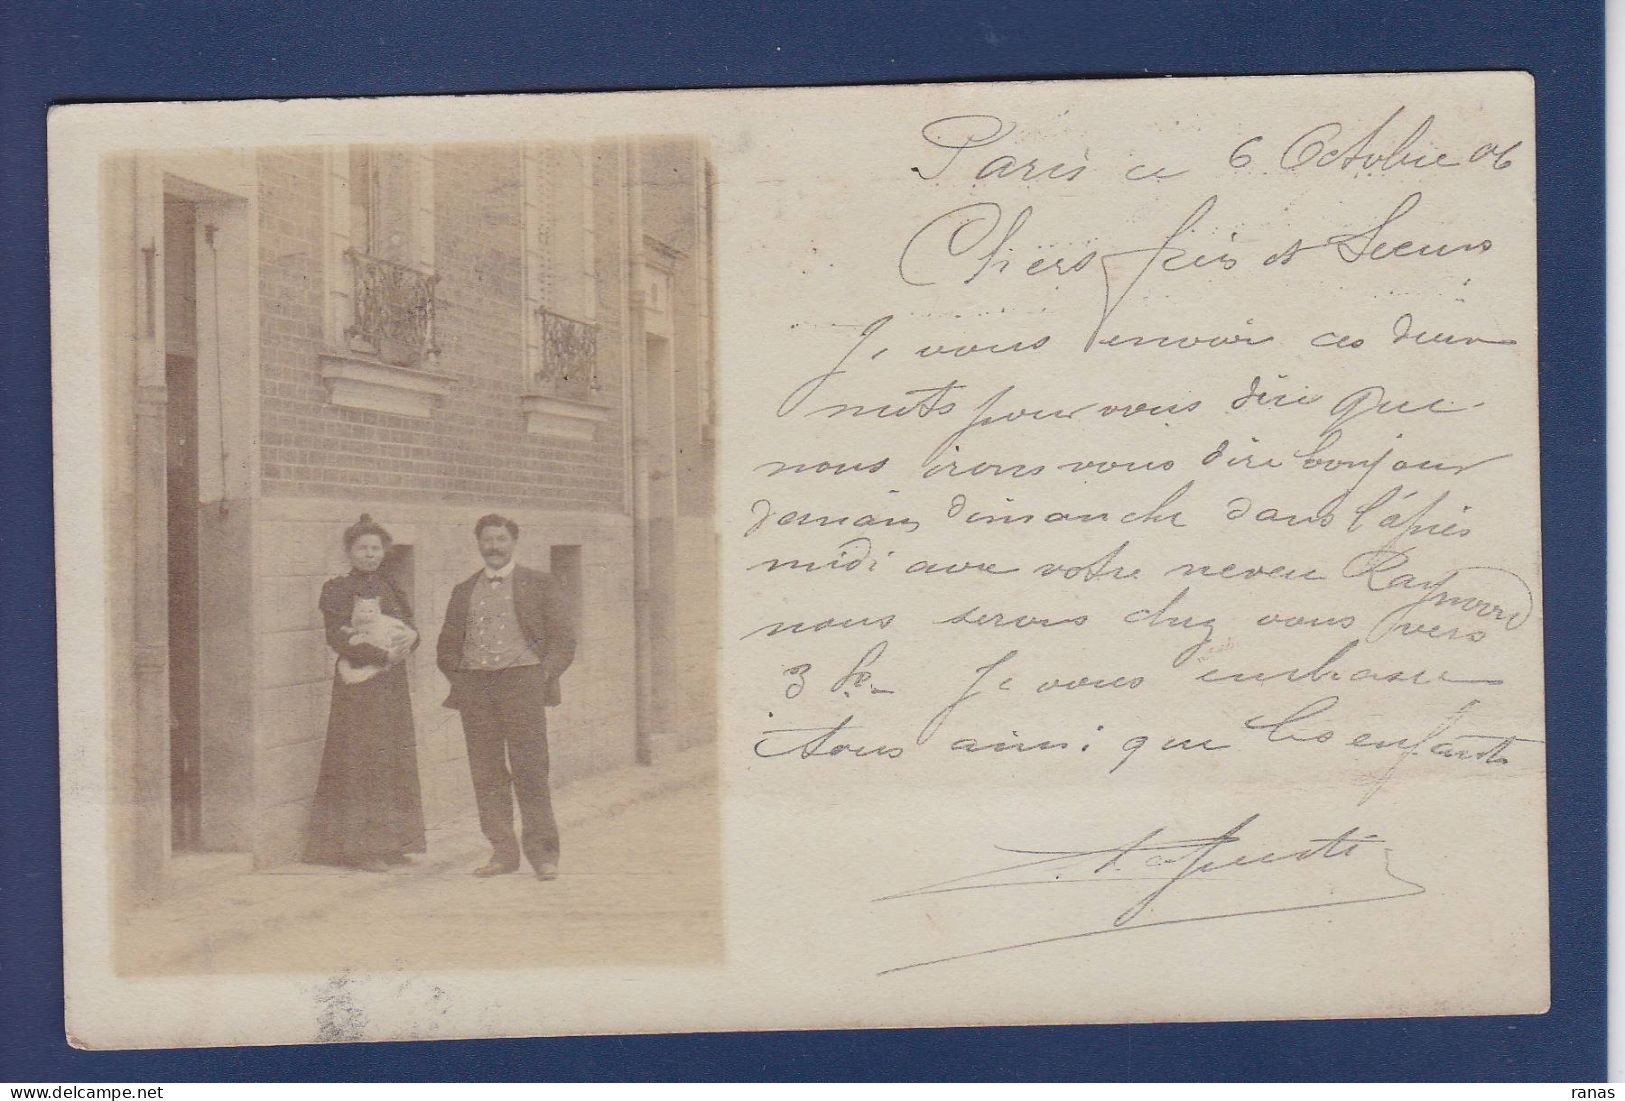 Paris ce 6 Octobre 06
Chers frèrs et Soeurs
Je vous envoie ces deux
mots pour vous dire que
nous irons vous dire bonjour
demain dimanche dans l'après
midi avec votre neveu Raymond
nous serons chez vous vers
3 he Je vous embrasse
tous ainsi que les enfants
ranas